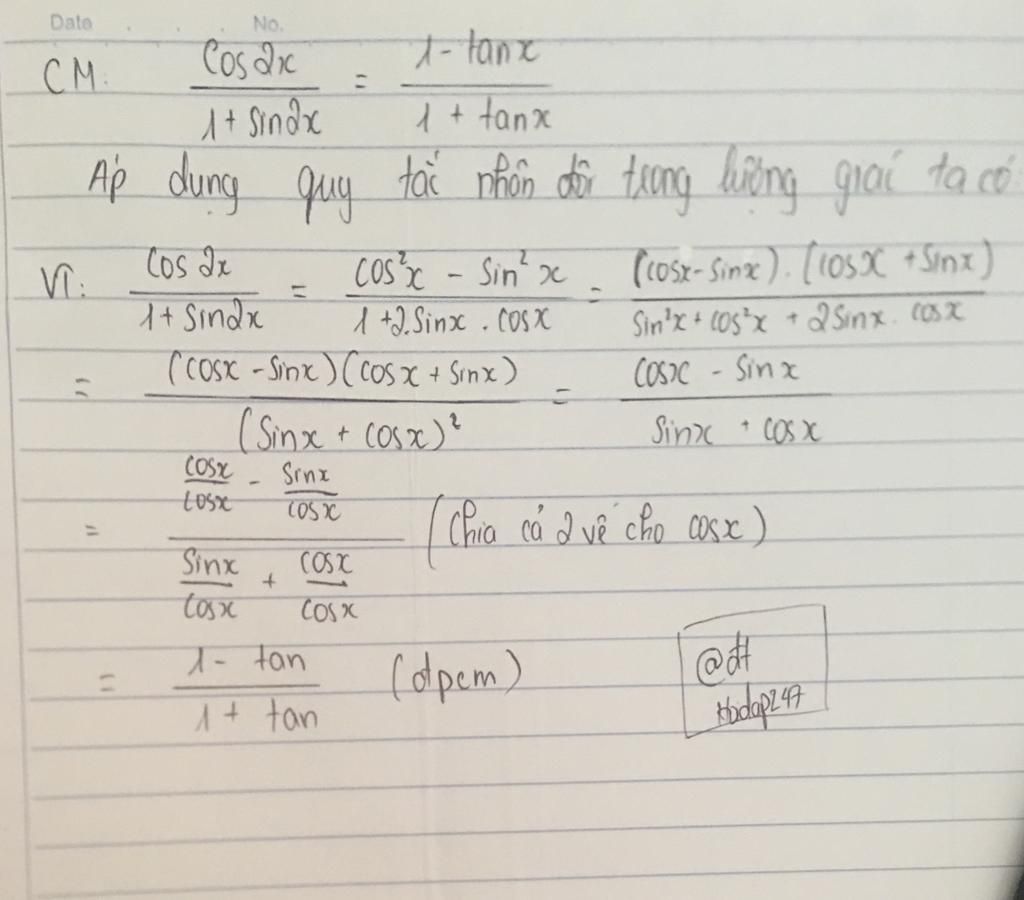 Date No.
CM: cos2x / (1 + sin2x) = (1 - tanx) / (1 + tanx)
Áp dụng quy tắc nhân đôi trong lượng giác ta có
VT: cos2x / (1 + sin2x) = (cos²x - sin²x) / (1 + 2.sinx.cosx) = (cosx - sinx).(cosx + sinx) / (sin²x + cos²x + 2sinx.cosx)
= (cosx - sinx)(cosx + sinx) / (sinx + cosx)² = (cosx - sinx) / (sinx + cosx)
= (cosx/cosx - sinx/cosx) / (sinx/cosx + cosx/cosx) (chia cả 2 vế cho cosx)
= (1 - tan) / (1 + tan) (đpcm)
@đt
Hoidap247